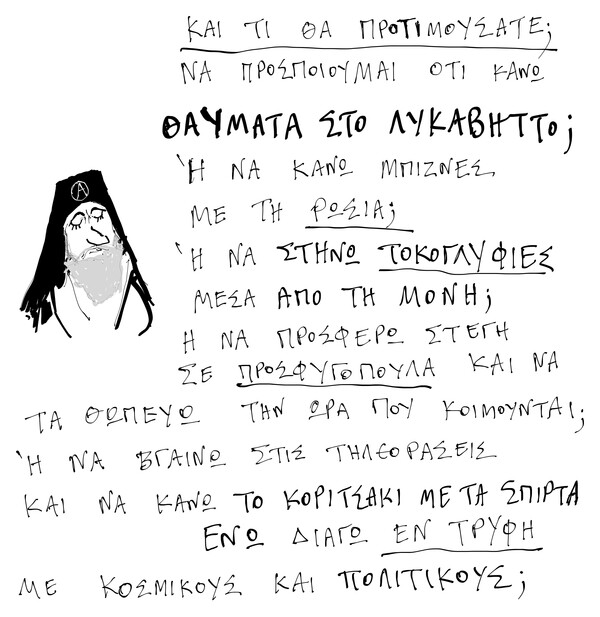 ΚΑΙ ΤΙ ΘΑ ΠΡΟΤΙΜΟΥΣΑΤΕ;
ΝΑ ΠΡΟΣΠΟΙΟΥΜΑΙ ΟΤΙ ΚΑΝΩ
ΘΑΥΜΑΤΑ ΣΤΟ ΛΥΚΑΒΗΤΤΟ;
Ή ΝΑ ΚΑΝΩ ΜΠΙΖΝΕΣ
ΜΕ ΤΗ ΡΩΣΙΑ;
Ή ΝΑ ΣΤΗΝΩ ΤΟΚΟΓΛΥΦΙΕΣ
ΜΕΣΑ ΑΠΟ ΤΗ ΜΟΝΗ;
Η ΝΑ ΠΡΟΣΦΕΡΩ ΣΤΕΓΗ
ΣΕ ΠΡΟΣΦΥΓΟΠΟΥΛΑ ΚΑΙ ΝΑ
ΤΑ ΘΩΠΕΥΩ ΤΗΝ ΩΡΑ ΠΟΥ ΚΟΙΜΟΥΝΤΑΙ;
Ή ΝΑ ΒΓΑΙΝΩ ΣΤΙΣ ΤΗΛΕΟΡΑΣΕΙΣ
ΚΑΙ ΝΑ ΚΑΝΩ ΤΟ ΚΟΡΙΤΣΑΚΙ ΜΕ ΤΑ ΣΠΙΡΤΑ
ΕΝΩ ΔΙΑΓΩ ΕΝ ΤΡΥΦΗ
ΜΕ ΚΟΣΜΙΚΟΥΣ ΚΑΙ ΠΟΛΙΤΙΚΟΥΣ;